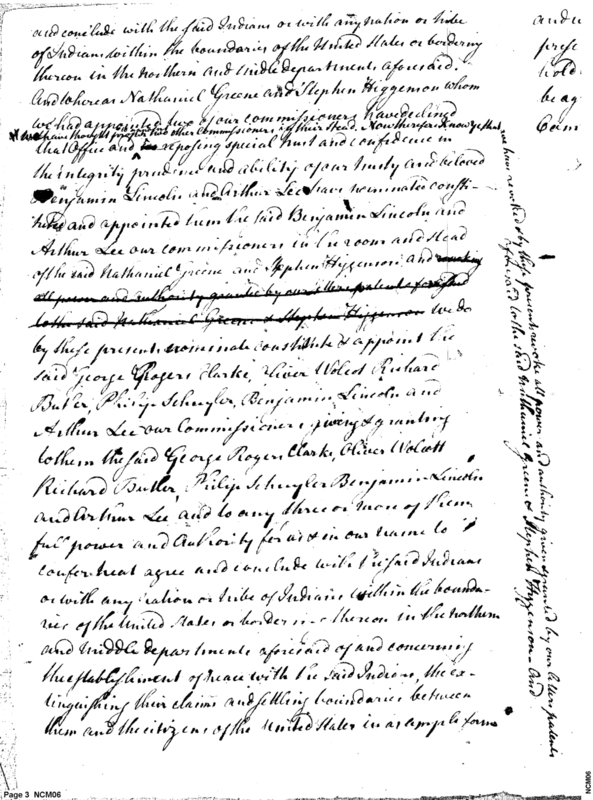 and conclude with the said Indians or with any nation or tribe
of Indians within the boundaries of the United States or bordering
thereon in the Northern and Middle departments aforesaid.
And whereas Nathaniel Greene and Stephen Higgenson whom
we had appointed two of our commissioners have declined
* we have thought proper to two other Commissioners in their Stead. Now therefore Know ye that
that Office and reposing special trust and confidence in
the integrity prudence and ability of our trusty and beloved
Benjamin Lincoln and Arthur Lee have nominated consti-
tuted and appointed them the said Benjamin Lincoln and
Arthur Lee our commissioners in the room and stead
of the said Nathaniel Greene and Stephen Higgenson, and revoking
all power and authority granted by our letters patents
to the said Nathaniel Greene & Stephen Higgenson we do
by these presents nominate constitute & appoint the
said George Rogers Clarke, Oliver Wolcot Richard
Butler, Philip Schuyler, Benjamin Lincoln and
Arthur Lee our Commissioners giving & granting
to them the said George Rogers Clarke, Oliver Wolcott
Richard Butler, Philip Schuyler Benjamin Lincoln
and Arthur Lee and to any three or more of them
full power and Authority for us & in our name to
confer treat agree and conclude with the said Indians
or with any nation or tribe of Indians within the bounda-
ries of the United States or bordering thereon in the northern
and middle departments aforesaid of and concerning
the establishment of peace with the said Indians, the ex-
tinguishing their claims and settling boundaries between
them and the citizens of the United States in as ample form
we have revoked & by these presents revoke all power and authority given & granted by our letters patents
aforesaid to the said Nathaniel Greene & Stephen Higgenson - And
and
prese
hold
be ag
Com
Page 3 NCM06
NCM06